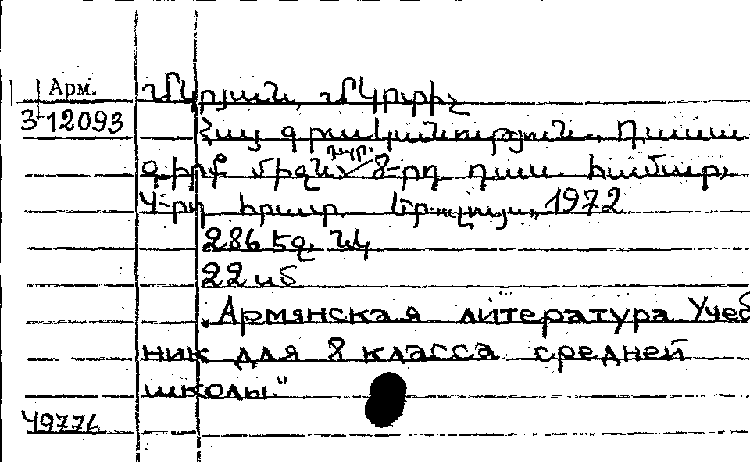 Арм.
3-12093
Մկրյան, Մկրտիչ
Հայ գրականություն. Դասա
գիրք միջն. դպր. 8-րդ դաս. համար,
4-րդ հրատ. Եր., «Լույս», 1972
286 էջ. նկ
22 սմ
"Армянская литература Учеб
ник для 8 класса средней
школы."